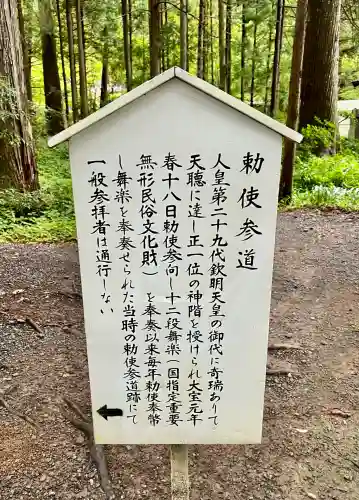 勅使参道
人皇第二十九代欽明天皇の御代に奇瑞ありて
天聴に達し正一位の神階を授けられ大宝元年
春十八日勅使参向し十二段舞楽(国指定重要
無形民俗文化財)を奉奏以来毎年勅使奉幣
し舞楽を奉奏せられた当時の勅使参道跡にて
一般参拝者は通行しない
←